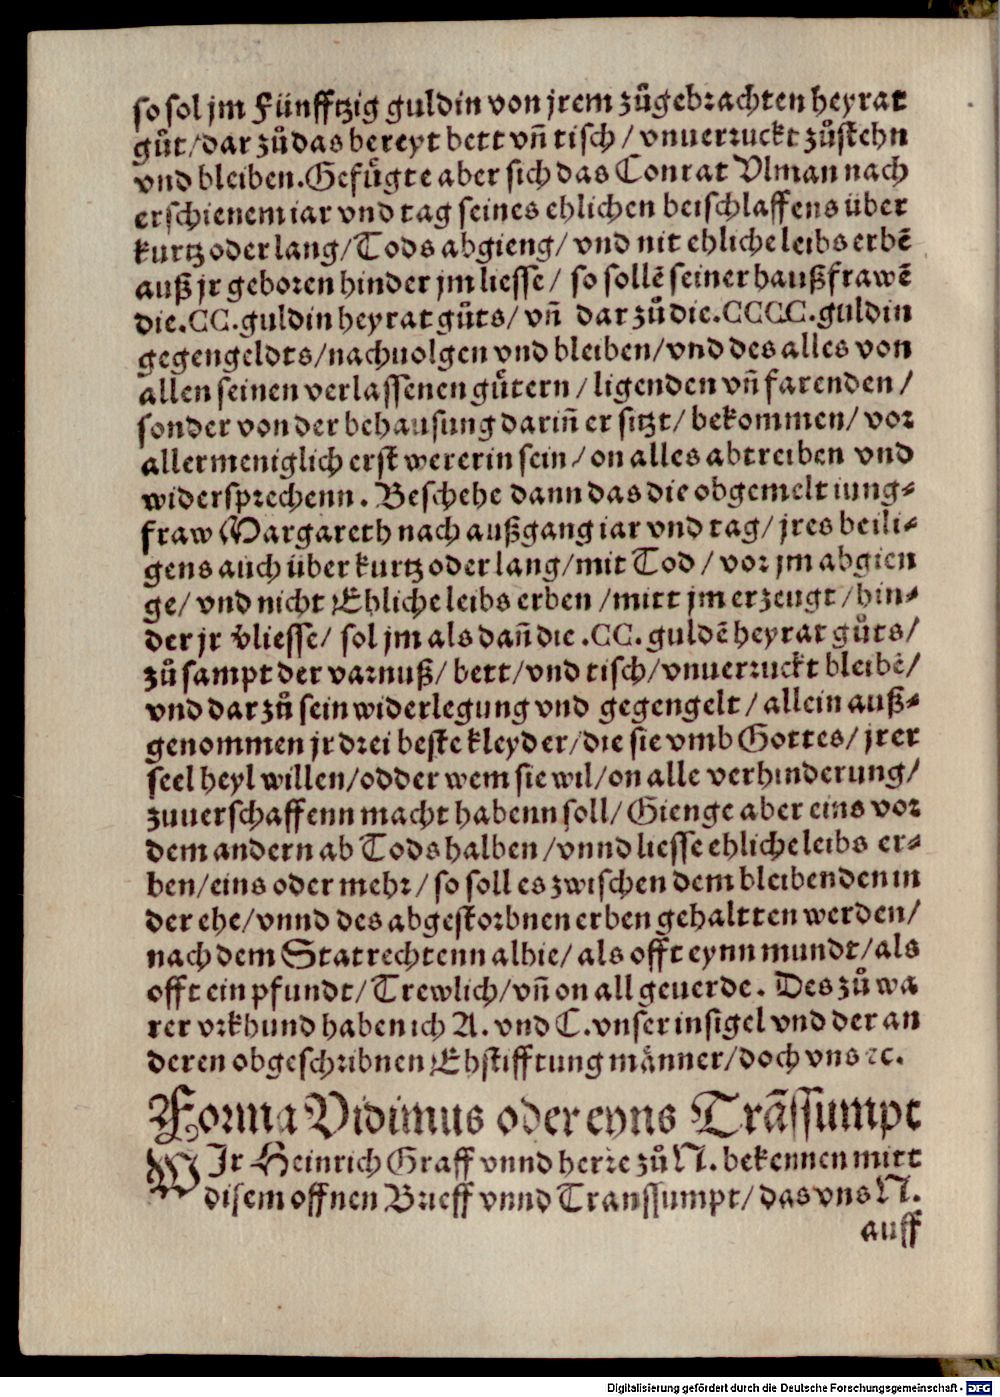 so sol jm Fünfftzig guldin von jrem zůgebrachten heyrat
gůt/dar zů das bereyt bett vñ tisch / vnuerruckt zůstehn
vnd bleiben. Gefügte aber sich das Conrat Vlman nach
erschienem iar vnd tag seines ehlichen beischlaffens über
kurtz oder lang/Tods abgieng/ vnd nit ehliche leibs erbē
auß jr geboren hinder jm liesse / so sollē seiner haußfrawē
die.CC.guldin heyrat gůts/ vñ dar zů die.CCCC.guldin
gegengeldts/nachuolgen vnd bleiben/vnd des alles von
allen seinen verlassenen gütern / ligenden vñ farenden /
sonder von der behausung dariñ er sitzt/ bekommen/ vor
allermeniglich erst wererin sein/on alles abtreiben vnd
widersprechenn. Beschehe dann das die obgemelt iung-
fraw Margareth nach außgang iar vnd tag/ jres beili-
gens auch über kurtz oder lang/mit Tod / vor jm abgien
ge/ vnd nicht Ehliche leibs erben /mitt jm erzeugt /hin-
der jr v̄liesse/ sol jm als dañ die .CC. guldē heyrat gůts/
zů sampt der varnuß/ bett/vnd tisch/vnuerruckt bleibē/
vnd dar zů sein widerlegung vnd gegengelt / allein auß-
genommen jr drei beste kleyder/die sie vmb Gottes/ jrer
seel heyl willen/odder wem sie wil/on alle verhinderung/
zuuerschaffenn macht habenn soll/ Gienge aber eins vor
dem andern ab Tods halben /vnnd liesse ehliche leibs er-
ben/eins oder mehr/ so soll es zwischen dem bleibenden in
der ehe/vnnd des abgestorbnen erben gehaltten werden/
nach dem Statrechtenn alhie/ als offt eynn mundt/als
offt ein pfundt/Trewlich/vñ on all geuerde. Des zů wa
rer vrkhund haben ich A. vnd C.vnser insigel vnd der an
deren obgeschribnen Ehstifftung männer/doch vns ꝛc.
Forma Vidimus oder eyns Trāssumpt
WJr Heinrich Graff vnnd herre zů N. bekennen mitt
disem offnen Brieff vnnd Transsumpt/ das vns N.
auff
Digitalisierung gefördert durch die Deutsche Forschungsgemeinschaft - DFG